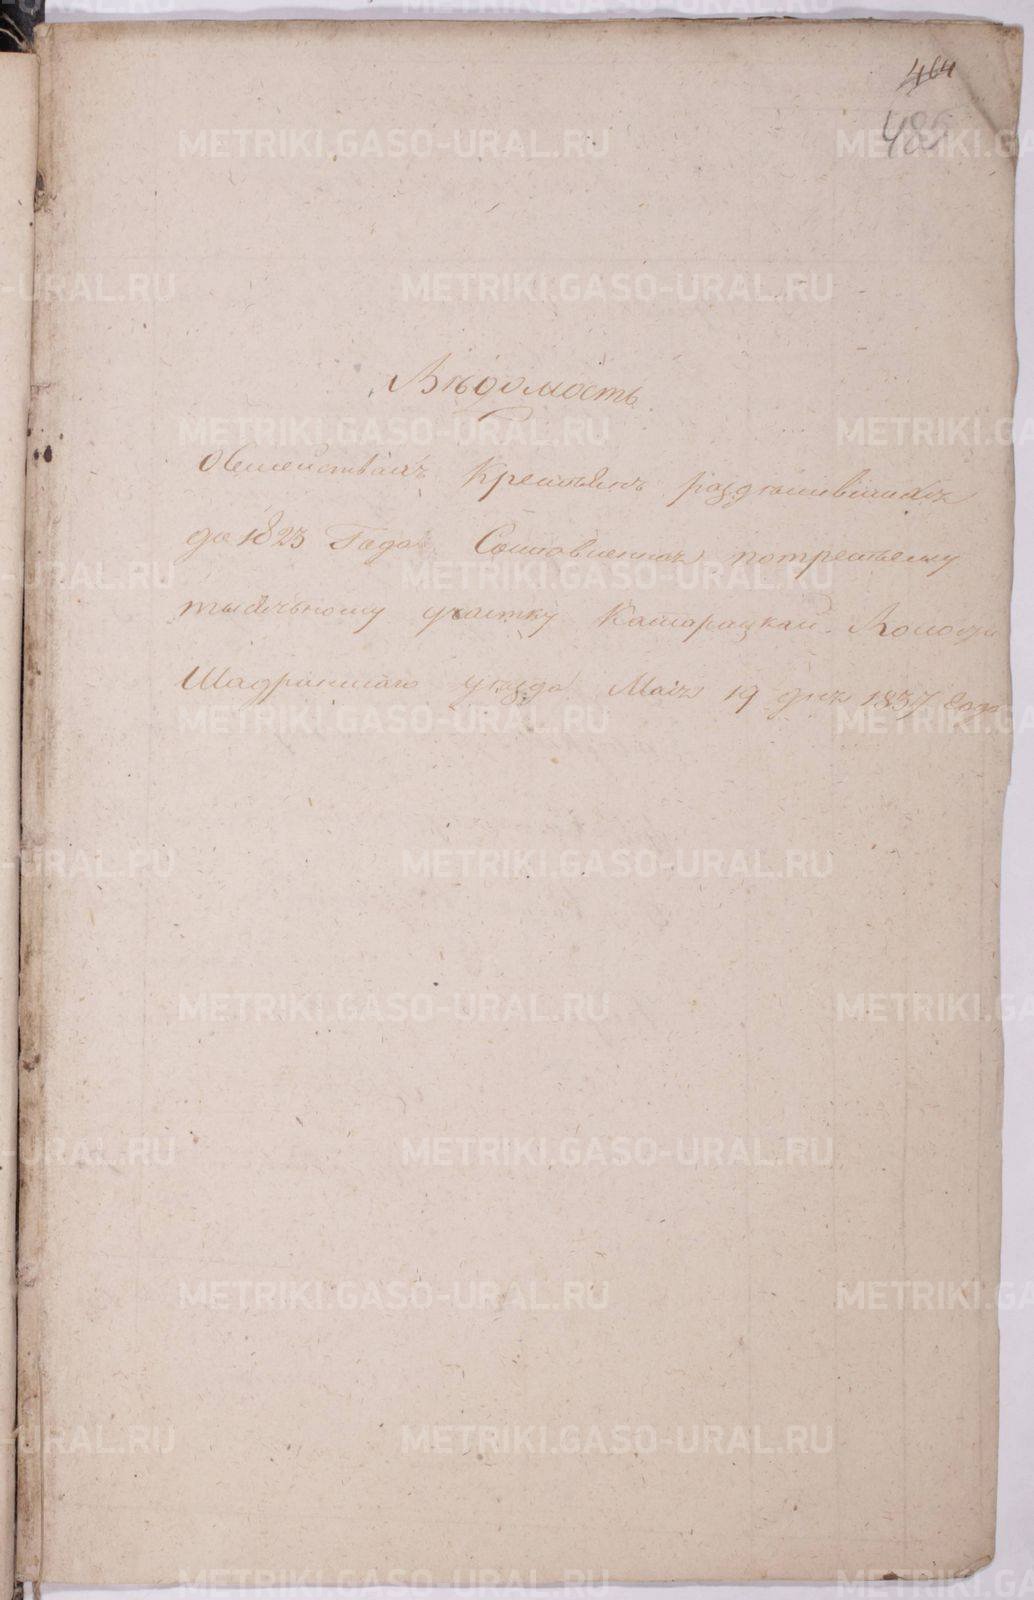 464
485
Вѣдомость
Осемействахъ Крестьянъ раздѣлившихся
до 1823 Года Составленная потретьему
тысячному участку Катарацкой Волости
Шадринскаго уѣзда Маія 19 дня 1837 Года
METRIKI.GASO-URAL.RU